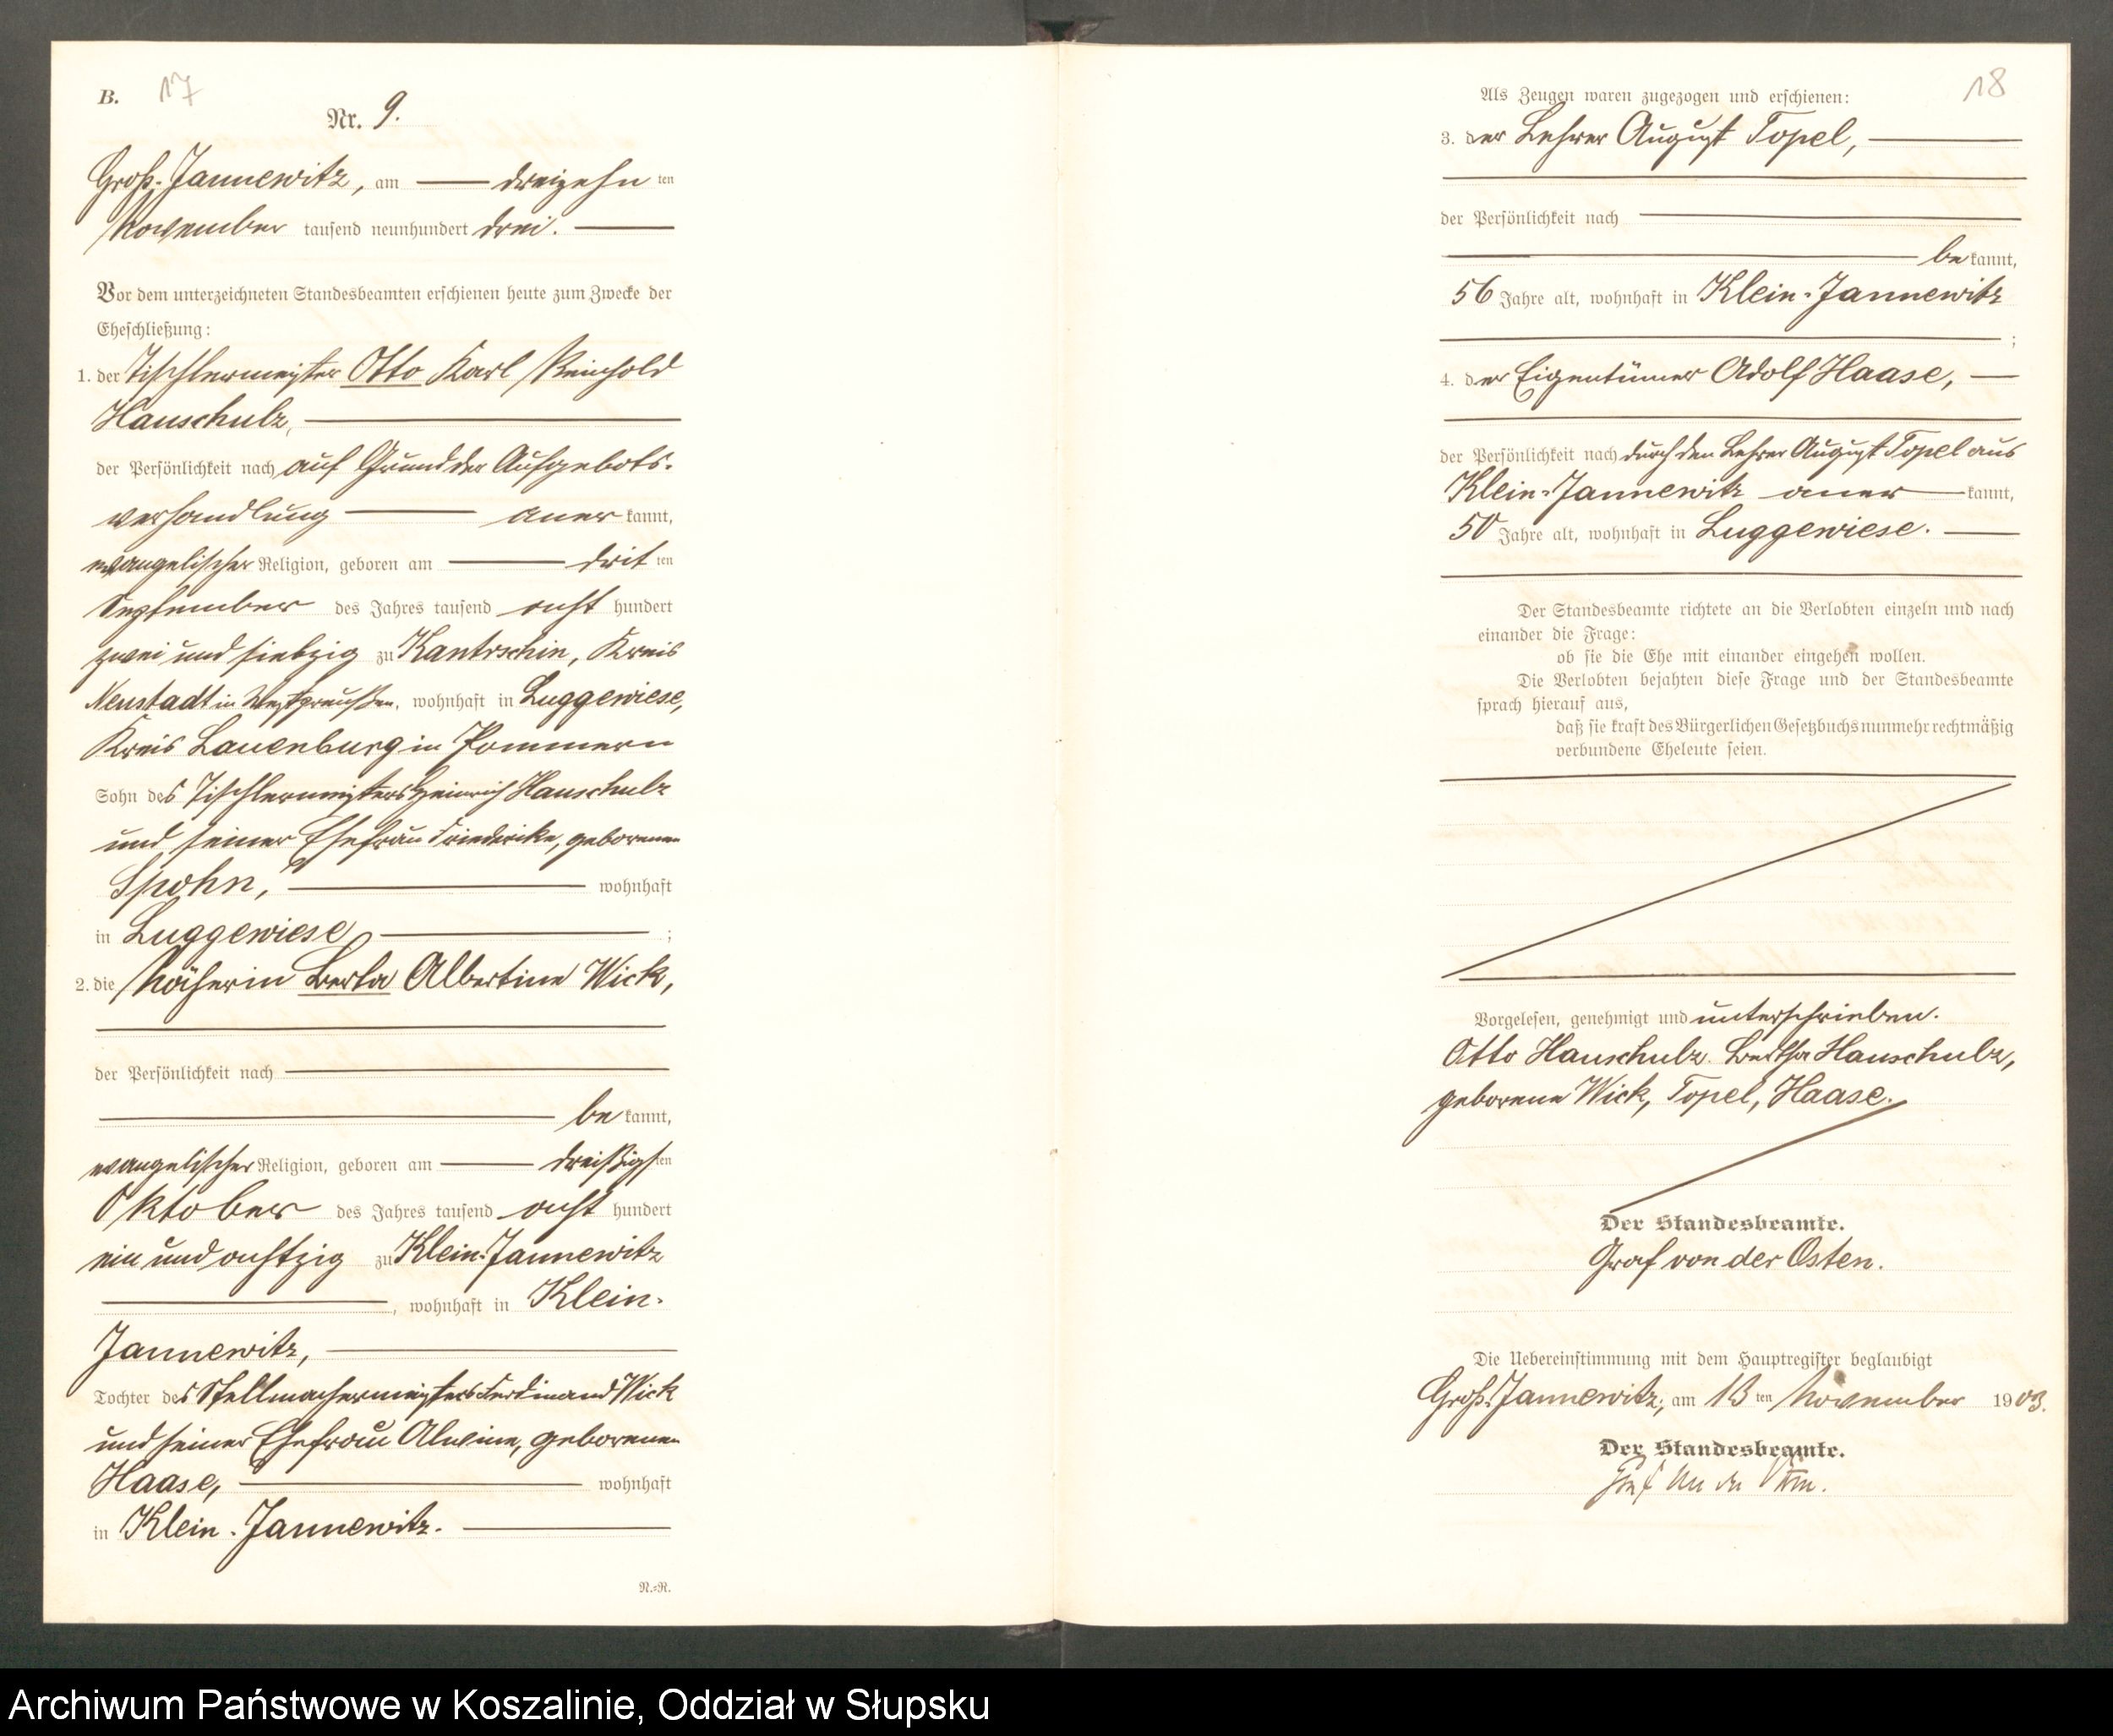 B. 17
Nr. 9.
Groß-Jannewitz, am dreizehn ten
November tausend neunhundert drei.
Vor dem unterzeichneten Standesbeamten erschienen heute zum Zwecke der
Eheschließung:
1. der Tischlermeister Otto Karl Reinhold
Hauschulz,
der Persönlichkeit nach auf Grund der Aufgebots-
verhandlung aner kannt,
evangelischer Religion, geboren am drit ten
September des Jahres tausend acht hundert
zwei und siebzig zu Kantrschin, Kreis
Neustadt in Westpreußen, wohnhaft in Luggewiese,
Kreis Lauenburg in Pommern
Sohn des Tischlermeisters Heinrich Hauschulz
und seiner Ehefrau Friedericke, geborenen
Spohn, wohnhaft
in Luggewiese ;
2. die Näherin Berta Albertine Wick,
der Persönlichkeit nach
be kannt,
evangelischer Religion, geboren am dreißigs ten
Oktober des Jahres tausend acht hundert
ein und achtzig zu Klein-Jannewitz
, wohnhaft in Klein-
Jannewitz,
Tochter des Stellmachermeisters Ferdinand Wick
und seiner Ehefrau Alwine, geborenen
Haase, wohnhaft
in Klein-Jannewitz.
N.=R.
18
Als Zeugen waren zugezogen und erschienen:
3. der Lehrer August Topel,
der Persönlichkeit nach
be kannt,
56 Jahre alt, wohnhaft in Klein-Jannewitz
;
4. der Eigentümer Adolf Haase,
der Persönlichkeit nach durch den Lehrer August Topel aus
Klein-Jannewitz aner kannt,
50 Jahre alt, wohnhaft in Luggewiese.
Der Standesbeamte richtete an die Verlobten einzeln und nach
einander die Frage:
ob sie die Ehe mit einander eingehen wollen.
Die Verlobten bejahten diese Frage und der Standesbeamte
sprach hierauf aus,
daß sie kraft des Bürgerlichen Gesetzbuchs nunmehr rechtmäßig
verbundene Eheleute seien.
Vorgelesen, genehmigt und unterschrieben.
Otto Hauschulz. Bertha Hauschulz,
geborene Wick, Topel, Haase.
Der Standesbeamte.
Graf von der Osten.
Die Uebereinstimmung mit dem Hauptregister beglaubigt
Groß-Jannewitz, am 13 ten November 1903.
Der Standesbeamte.
Graf von der Osten.
Archiwum Państwowe w Koszalinie, Oddział w Słupsku